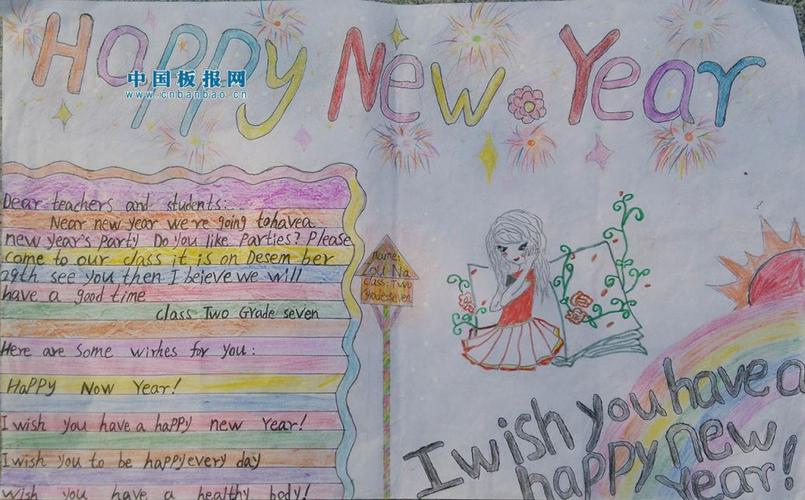 Happy New Year
中国板报网
www.cnbanbao.cn
Dear teachers and students:
Near new year we're going tohavea
new year's party Do you like parties? Please
come to our class it is on Desem ber
29th see you then I beieve we will
have a good time
class Two Grade seven
Here are some wirhes for you:
HaPPy Now Year!
I wish you have a haPPy new Year!
I wish you to be haPPyevery day
wish you have a healthy body!
name:
Zou Na
class: Two
Grade:seven
I wish you have a
happy new
year!